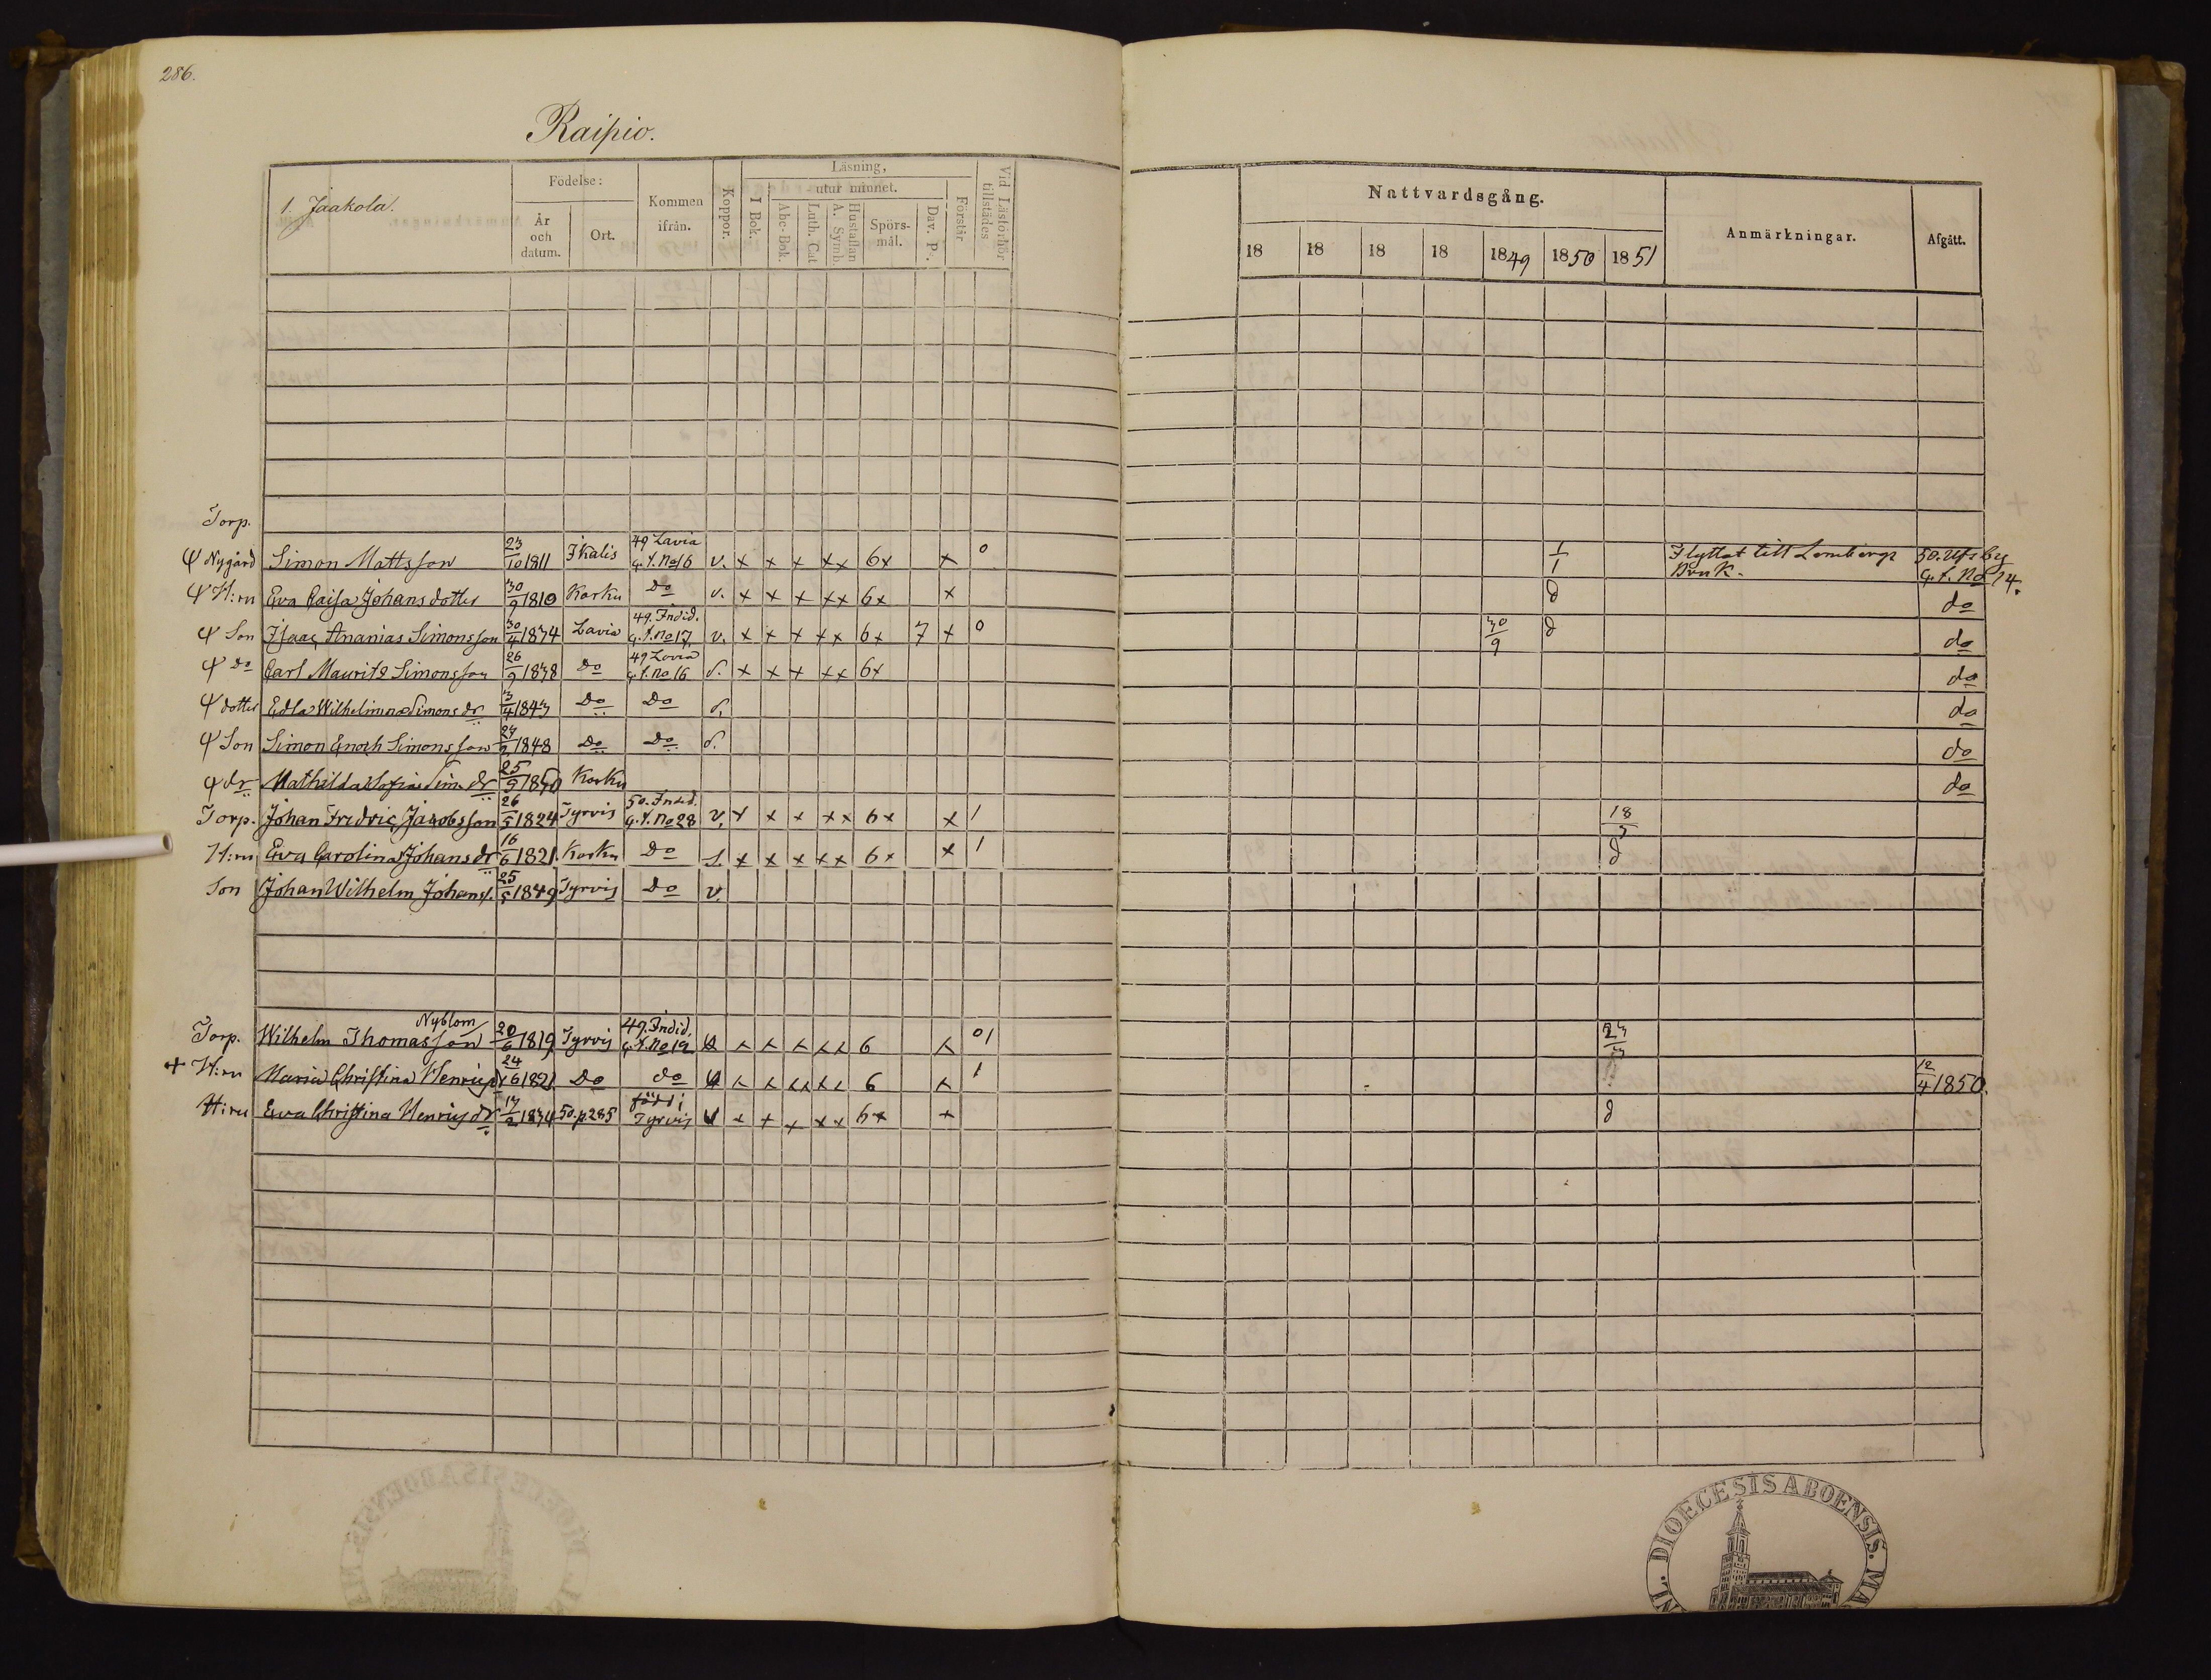 286.
Raipio.
1. Jaakola.
Födelse:
År och datum.
Ort.
Kommen ifrån.
Koppor.
Läsning,
I Bok.
utur minnet.
Abc-Bok.
Luth. Cat
Hustaflan A. Symb.
Spörs-mål.
Dav. Ps.
Förstår
Vid Läsförhör tillstädes
Nattvardsgång.
18 18 18 18 1849 1850 1851
Anmärkningar.
Afgått.
Torp.
Nygård Simon Mattsson 23/10 1811 Ikalis 49 Lavia a.t. No 16 v. x x x xx 6x x 0 1/1 Flyttat till 50.
H:ru Eva Caisa Johansdotter 30/9 1810 Karku Do v. x x x xx 6x x d do
Son Isaac Ananias Simonsson 30/4 1834 Lavia 49. Indid. a.t. No 17 v. x x x xx 6x 7 x 0 30/9 d do
Do Carl Maurits Simonsson 26/9 1838 Do 49 Lavia a.t. No 16 x x x xx 6x do
dotter Edla Wilhelmina Simons dr 3/4 1843 Do Do do
Son Simon Enoch Simonsson 1848 Do Do do
dr Mathilda Sofia Sim. dr 25/9 1850 Karku do
Torp. Johan Fredric Jacobsson 26/5 1824 Tyrvis 50. Indid. a.t. No 28 v. x x x xx 6x x 1 18/3
H:ru Eva Carolina Johans dr 16/6 1821. Karku Do x x x xx 6x x 1 d
Son Johan Wilhelm Johans s. 25/5 1849 Tyrvis Do v.
Nyblom
Torp. Wilhelm Thomasson 20/6 1819 Tyrvis 49. Indid. a.t. No 19 x x x xx 6 x 01 23/3
+ H:ru Maria Christina Henrics dr 24/6 1821 Do do x x xx xx 6 x 1 12/4 1850.
H:ru Eva Christina Henrics dr 17/2 1834 50. p 285 född i Tyrvis x x x xx 6x x d
DIOECESIS ABOENSIS.